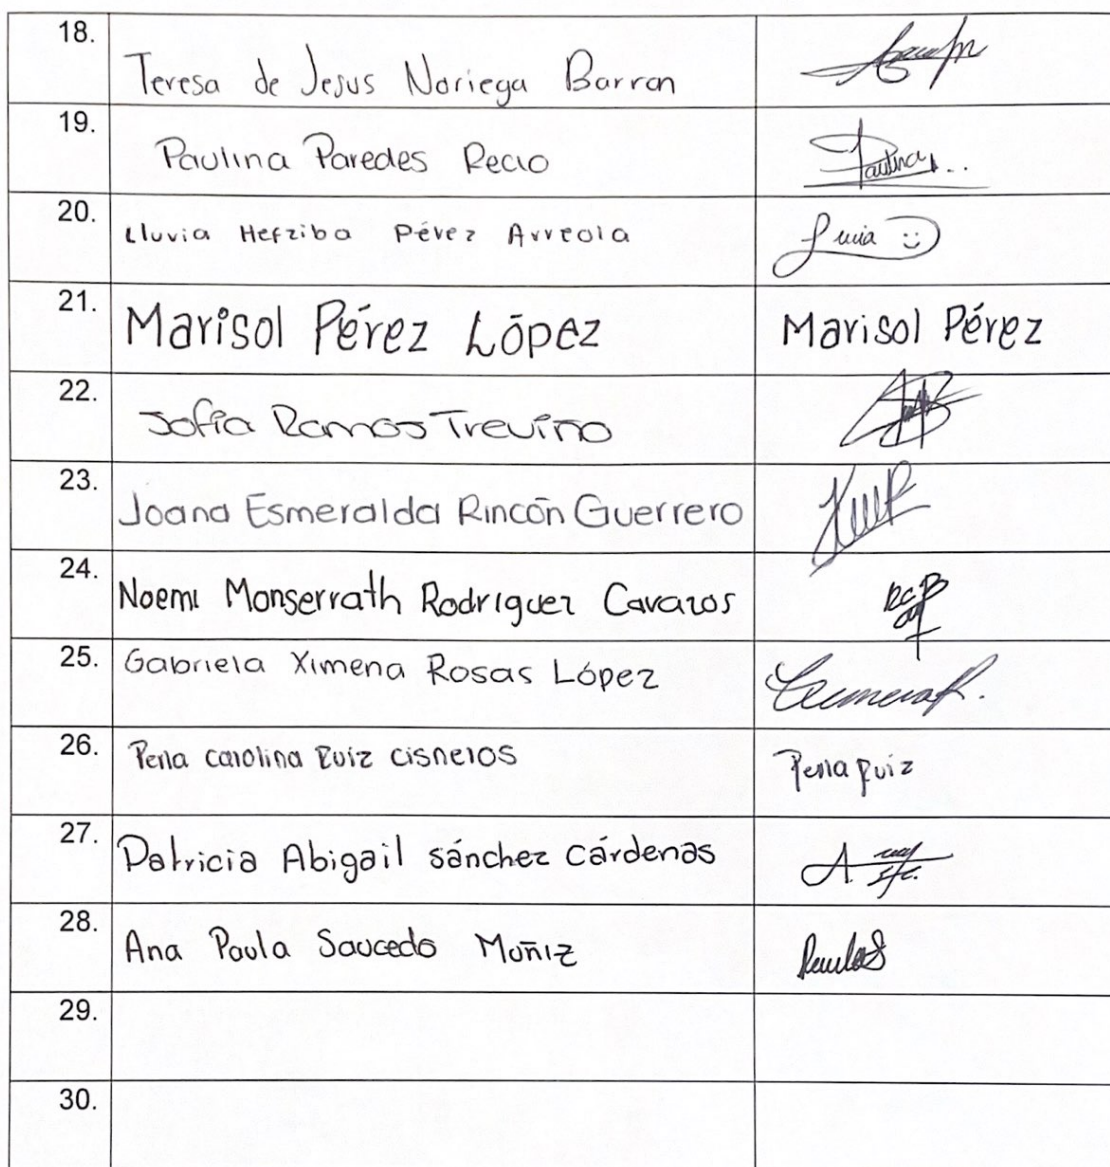 18. Teresa de Jesus Noriega Barron
19. Paulina Paredes Recio Paulina
20. Lluvia Hefziba Pérez Arreola Lluvia
21. Marisol Pérez López Marisol Pérez
22. Sofía Ramos Treviño
23. Joana Esmeralda Rincón Guerrero
24. Noemi Monserrath Rodriguez Cavazos
25. Gabriela Ximena Rosas López Ximena R.
26. Perla Carolina Ruiz cisneros Perla Ruiz
27. Patricia Abigail sánchez cárdenas
28. Ana Paula Saucedo Muñiz PaulaS
29.
30.